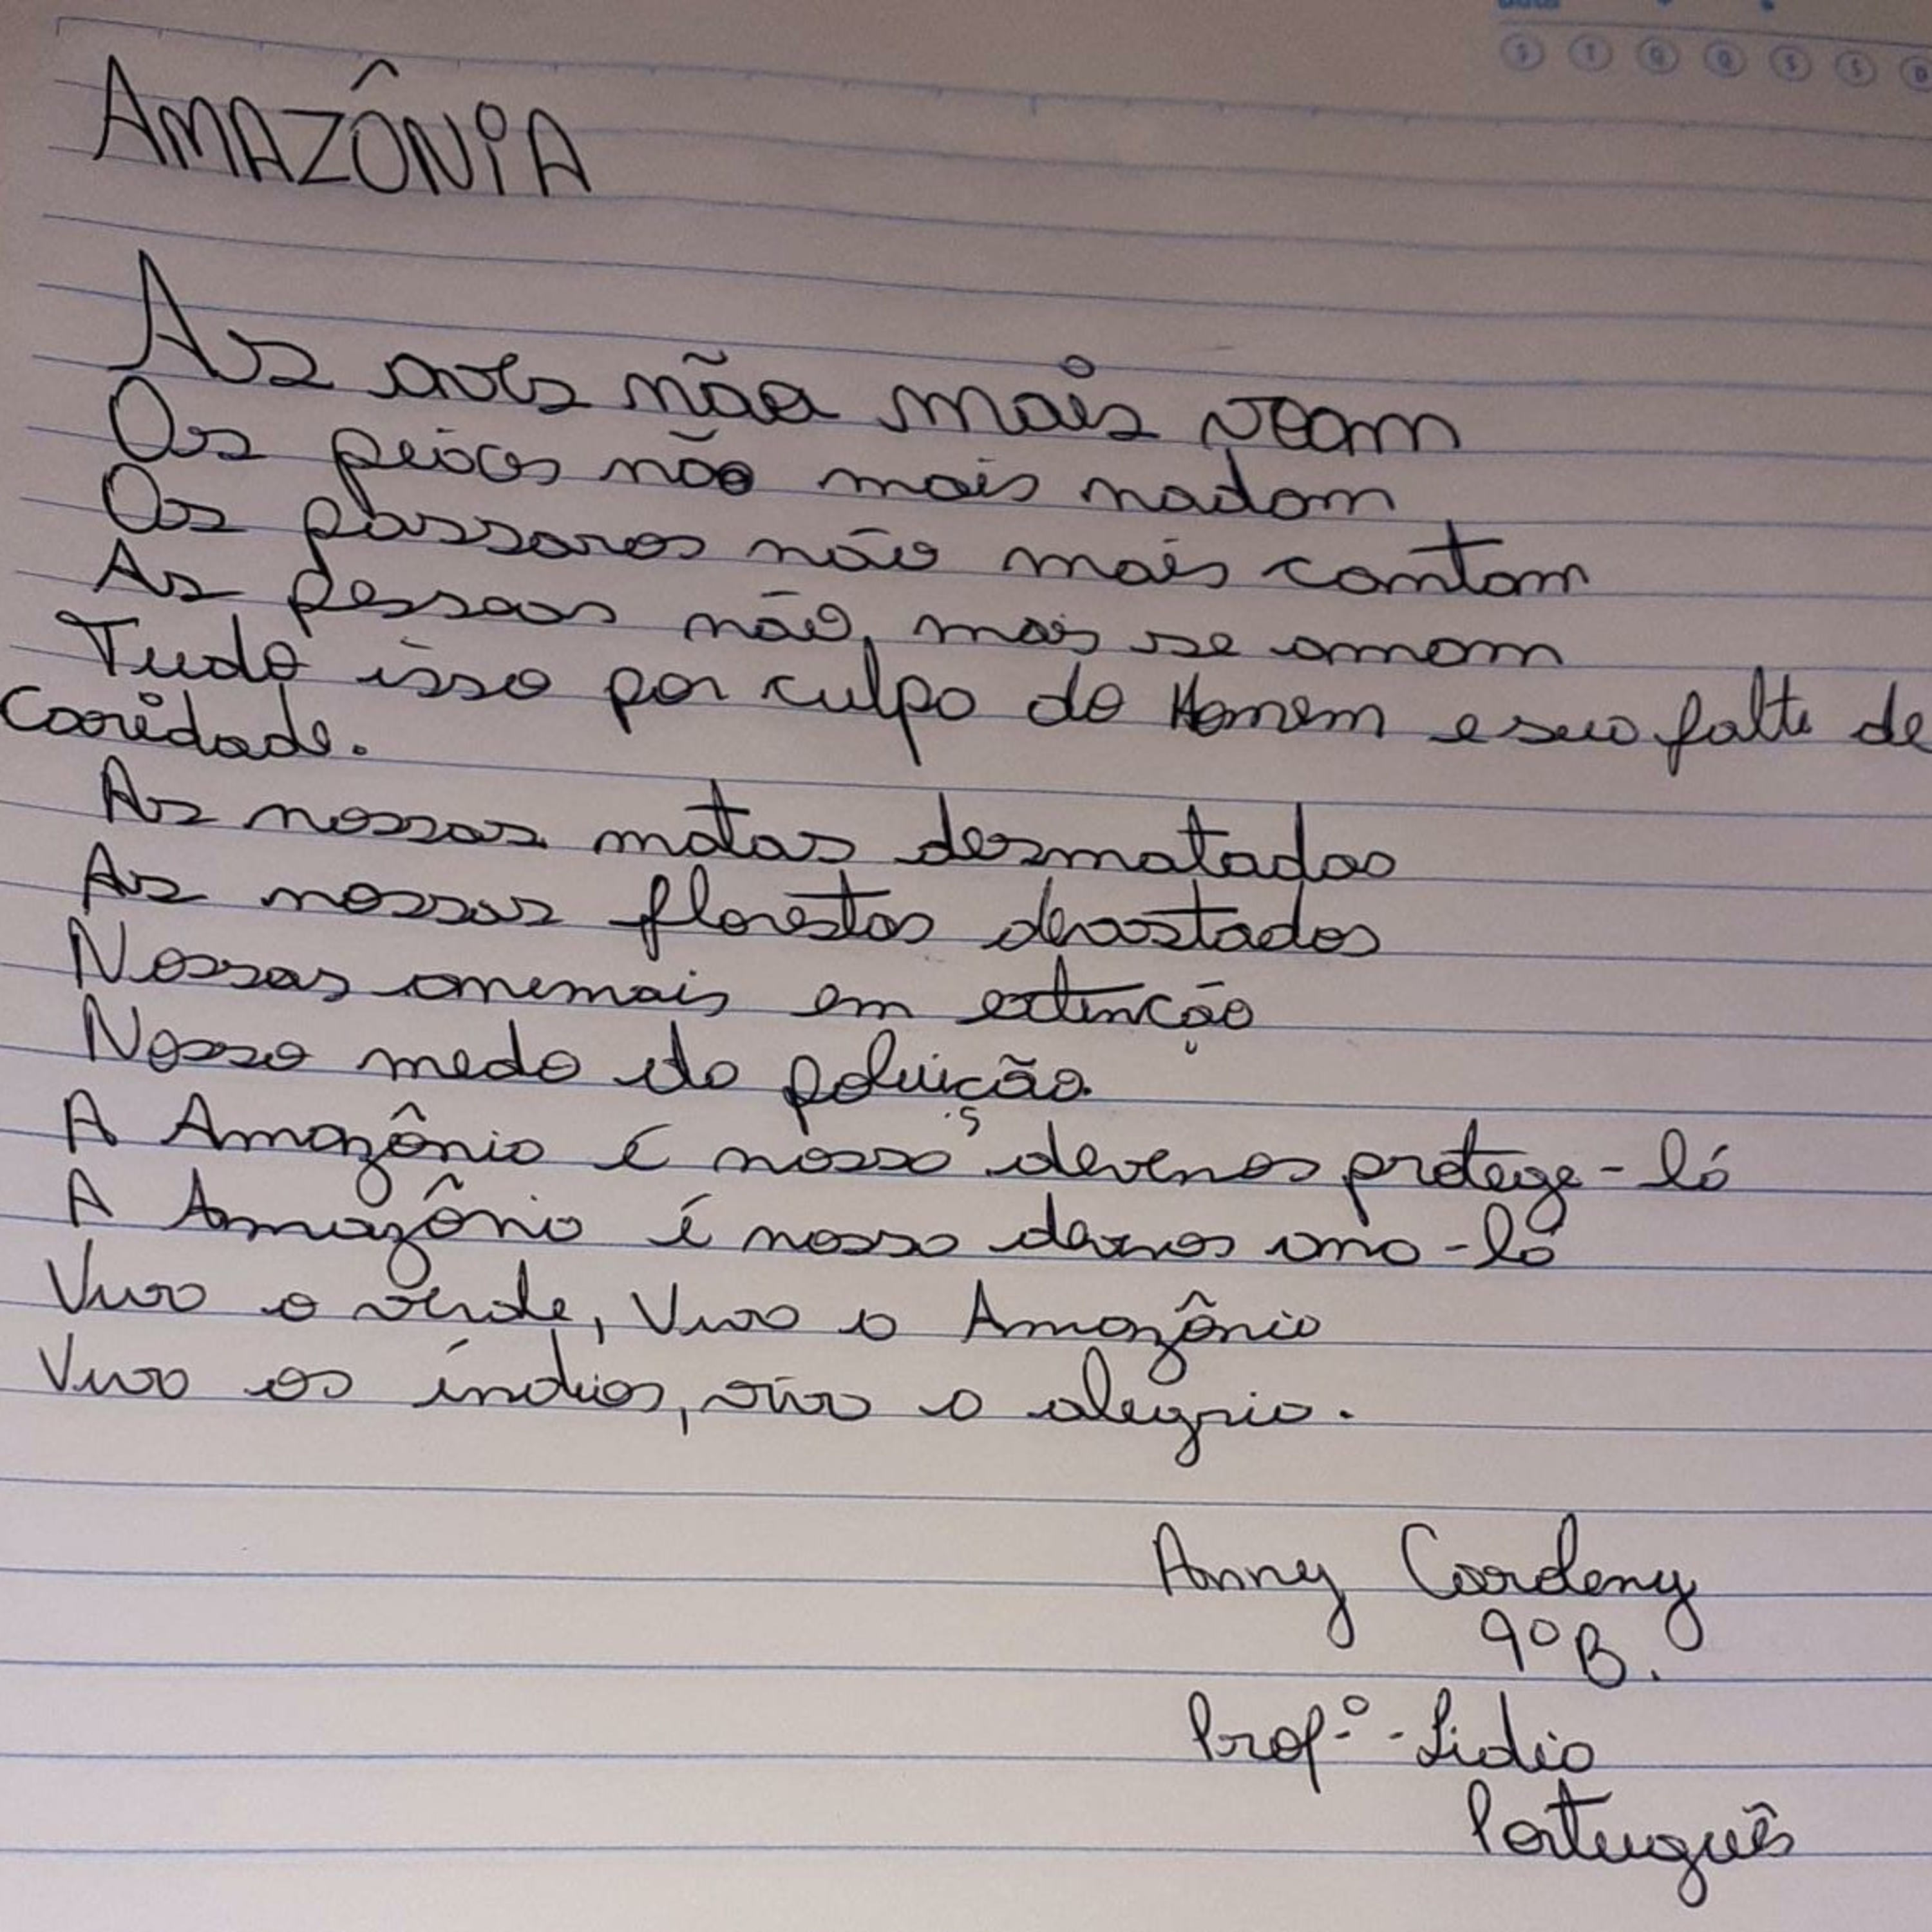 Data
S T Q Q S S D
AMAZÔNIA
As aves não mais voam
Os peixes não mais nadam
Os pássaros não mais cantam
As pessoas não, mais se amam
Tudo isso por culpa do Homem e sua falta de
Caridade.
As nossas matas desmatadas
As nossas florestas devastadas
Nossas animais em extinção
Nosso medo da poluição.
A Amazônia é nossa, devemos protege-lá
A Amazônia é nossa devemos ama-lá
Viva o verde, Viva a Amazônia
Viva os índios, viva a alegria.
Anny Cardeny
9º B.
Prof.ª - Lidia
Português